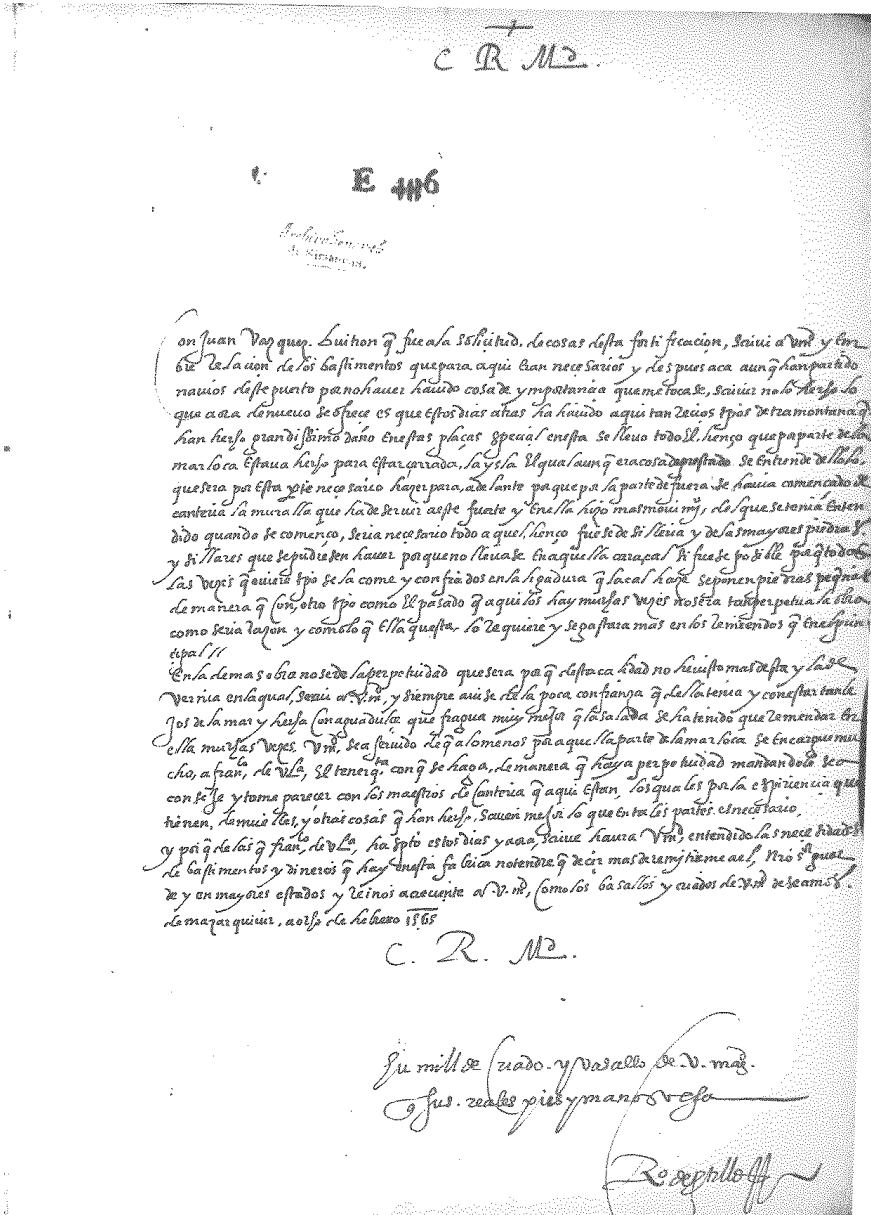 C R Md.
E 486
Archivo General
de Simancas
Con Juan Vazquez. Luithon q̃ fue a la Solicitud. de cosas desta fortificacion, scrivi a vmd y em
bie relacion de los bastimentos que para aqui eran necesarios y despues aca aunq̃ han partido
navios deste puerto por no haver havido cosa de ymportancia que me tocase, scrivir no lo he hecho lo
que aora de nuevo se ofrece es que estos dias atras ha havido aqui tan recios tpõs de tramontana q̃
han hecho grandissimo daño en estas plaças special en esta se llevo todo el. lienço que pa parte de la
mar loca estava hecho para estar cerrada, la ysla El qual aunq̃ era cosa de prestado se entiende dello lo,
que sera por esta pte necesario hazer para, adelante porque por la parte de fuera. se havia comencado de
canteria la muralla que ha de servir a este fuerte y en ella hizo mas movimj, de lo que se tenia enten
dido quando se començo, seria necesario todo aquel, lienço fuese de silleria y de las mayores piedras
y sillares que se pudiesen haver porque no llevase en aquella cara, cal si fuese posible porq̃ todas
las vezes q̃ quiere tpõ se la come y confiados en la ligadura q̃ la cal haze se ponen piedras peq̃nas
de manera q̃ con, otro tpõ como el pasado q̃ aqui los hay muchas vezes no sera tan perpetua la obra
como seria razon y como lo q̃ Ella questa. lo requiere y se gastara mas en los remiendos q̃ en el prin
cipal //
En la demas obra no se de la perpetuidad que sera por q̃ desta calidad no he visto mas desta y la de
Verrua en la qual, servi a. V. md, y siempre avise de la poca confianza q̃ della tenia y con estar tan le
jos de la mar y hecha con agua dulce que fragua muy mejor q̃ la salada se ha tenido que remendar en
ella muchas vezes. Vmd, sea servido de q̃ a lo menos por aquella parte de la mar loca se encargue mu
cho, a fran.co de vla, El tener q.ta con q̃ se haga, de manera q̃ haya perpetuidad mandandole se a
conseje y tome parecer con los maestros de canteria q̃ aqui estan, los quales por la espiriencia que
tienen, de muelles, y otras cosas q̃ han hecho, saven mejor lo que en tales partes. es necesario,
y porq̃ de las q̃ fran.co, de vla, ha spto estos dias y aora, scrive havra Vmd, entendido las necesidades
de bastimentos y dineros q̃ hay en esta fabrica no tendre q̃ decir mas de remytirme a el, Nro Sr guar
de y en mayores estados y reinos acreciente a. V. md, como los basallos y criados de V. md deseamos.
de mazarquivir. a ocho de hebrero 1565
C. R. Md.
Humillde Criado. y vasallo de. V. mag.
q sus. reales pies y manos vesa
Ro. de portillo